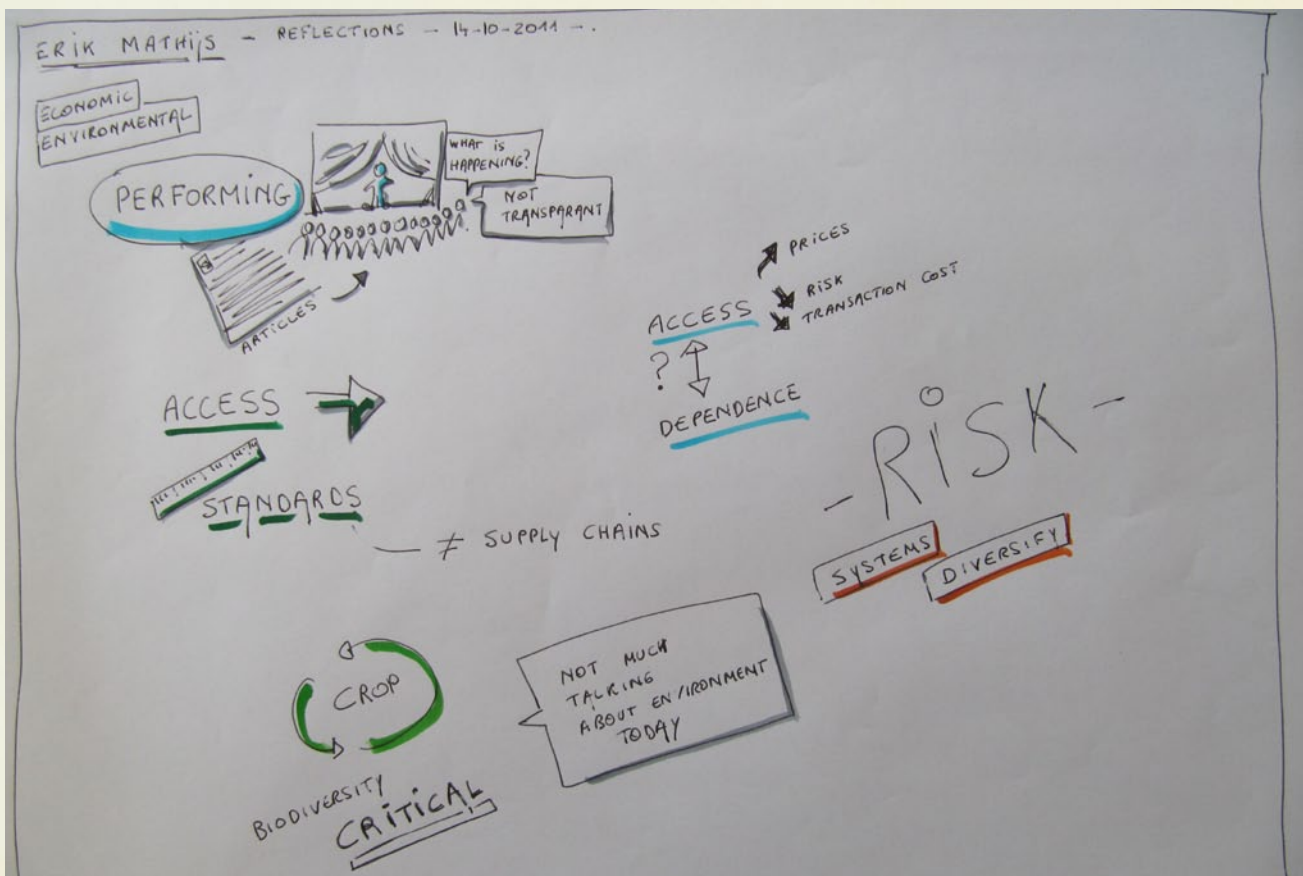 ERIK MATHIJS - REFLECTIONS - 14-10-2011 -.
ECONOMIC
ENVIRONMENTAL
PERFORMING
WHAT IS
HAPPENING?
NOT
TRANSPARANT
ARTICLES
ACCESS
STANDARDS
≠ SUPPLY CHAINS
PRICES
RISK
TRANSACTION COST
ACCESS
?
DEPENDENCE
- RISK -
SYSTEMS
DIVERSIFY
CROP
BIODIVERSITY
CRITICAL
NOT MUCH
TALKING
ABOUT ENVIRONMENT
TODAY